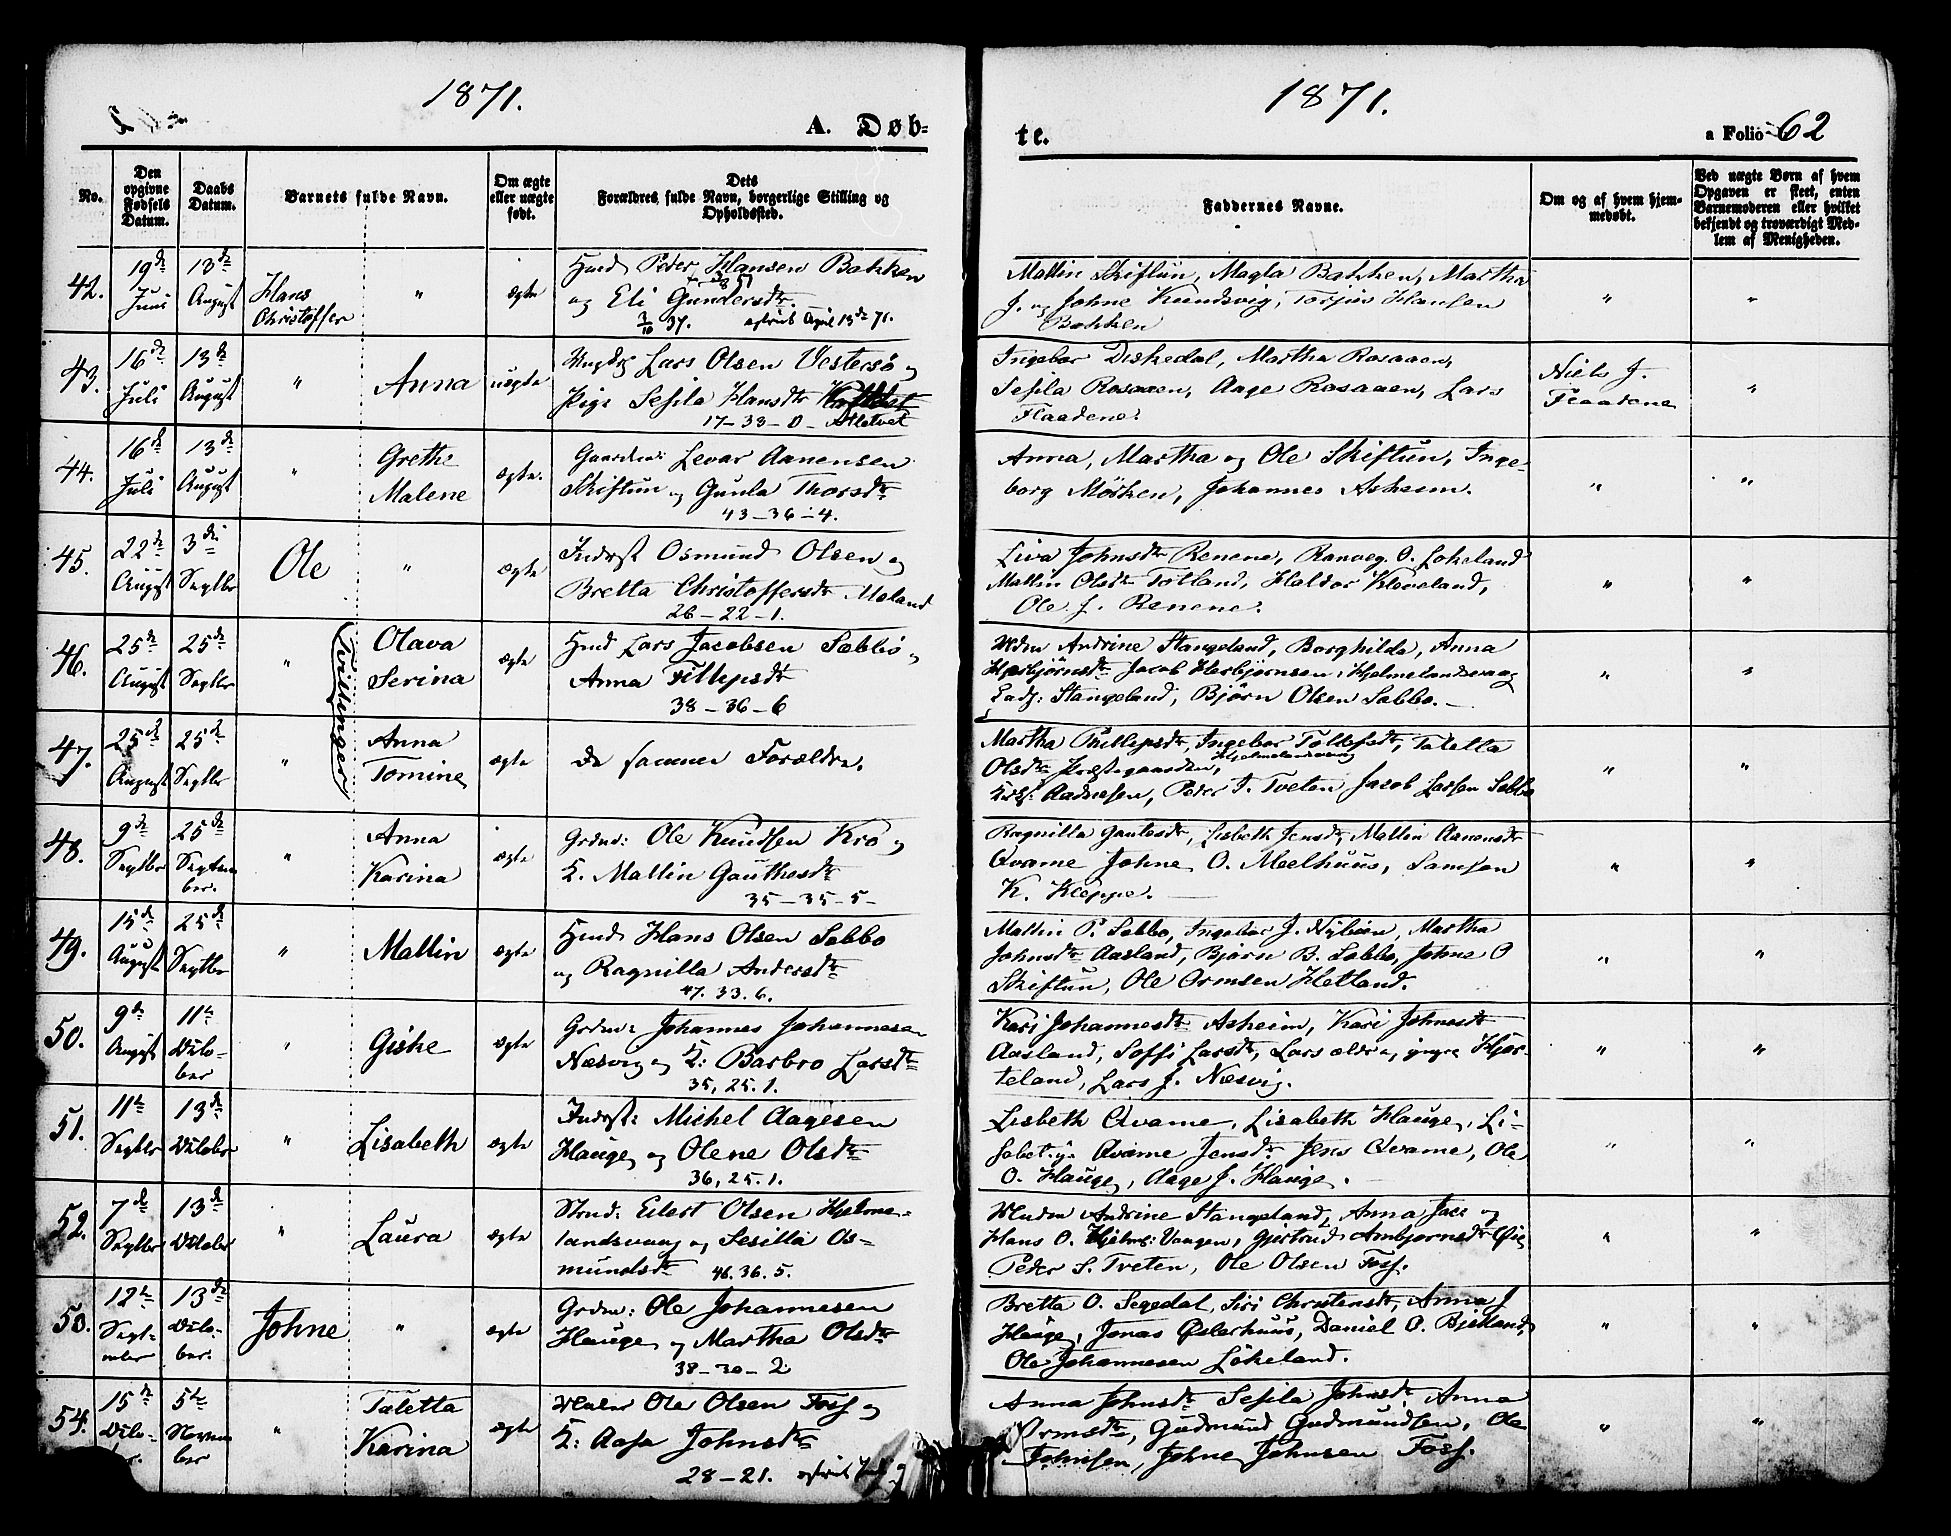 1871.
A. Døb=
No.
Den opgivne Fødsels Datum.
Daabs Datum.
Barnets fulde Navn.
Om ægte eller uægte født.
Dets Forældres fulde Navn, borgerlige Stilling og Opholdssted.
1871.
te.
a Folio 62
Faddernes Navne.
Om og af hvem hjem-
medøbt.
Ved uægte Børn af hvem
Opgaven er skeet, enten
Barnemoderen eller hvilket
bekjendt og troværdigt Med-
lem af Menigheden.
42. 19de Juni 13de August Hans Christoffer " ægte
Hmd Peder Hansen Bakken
og Eli Gundersdtr.
37. April 13de 71.
Mallin Skiftun, Magla Bakken, Martha
J. og Johne Kundsvig, Torjuis Hansen
Bakken
" "
43. 16de Juli 13de August " Anna uægte
Ungkg Lars Olsen Vestersø og
Pige Sesila Hansdtr
17-33-0-
Ingebor Diskedal, Martha Rosaaen,
Sesila Rosaaen, Aage Rosaaen, Lars
Flaadene.
Niels J.
Flaadene
"
44. 16de Juli 13de August " Grethe Malene ægte.
Gaardm: Levar Aanensen
Skiftun og Gunla Thorsdtr
43-36-4.
Anna, Martha og Ole Skiftun, Inge-
borg Mösken, Johannes Asheim.
" "
45. 22de August 3die Septbr Ole " ægte
Inderst Osmund Olsen og
Bretta Christoffersdtr Meland
26-22-1.
Liva Johnsdtr Renene, Ranveg O. Lokeland
Mallin Olsdtr Totland, Haldor Kleveland,
Ole J. Renene.
" "
46. 25de August 25de Septbr " Olava Serina ægte
(Tvillinger)
Hmd Lars Jacobsen Sæbbö og
Anna Fillipsdtr
38-36-6
Mdm Andrine Stangeland, Borghilda, Anna
Herbjörnsdtr Jacob Herbjörnsen, Hjelmelandsvaag
Ladj: Stangeland, Björn Olsen Sæbbo.-
" "
47. 25de August 25de Septbr " Anna Tomine ægte
De samme Forældre.
Martha Phillipsdtr, Ingebor Tollefsdtr, Taletta
Olsdtr Præstegaarden, Hjelmelandsvaag
Kirks. Aadnesen, Peder S. Tveten, Jacob Larsen Sæbbo
" "
48. 9de Septbr 25de September " Anna Karina ægte
Grdm: Ole Knudsen Kro og
K. Mallin Gauthesdtr
35-35-5-
Ragnilla Gautesdtr, Lisbeth Jensdtr, Mallin Aanensdtr
Qvame Johne O. Meelhuus, Samson
K. Kleppe.
" "
49. 15de August 25de Septbr " Mallin ægte
Hmd Hans Olsen Sæbbo
og Ragnilla Andersdtr
47. 33. 6.
Mallin P. Sæbbo, Ingebor J. Nyböen, Martha
Johnsdtr Aasland, Bjørn B. Sæbbo, Johne O
Skiftun, Ole Ormsen Hetland.
" "
50. 9de August 11te Octo-
ber " Giske ægte
Grdm: Johannes Johannesen
Næsvig og K: Barbro Larsdtr
35, 25. 1.
Kari Johannesdtr Asheim, Kari Johnesdtr
Aasland, Soffi Larsdtr, Lars ældre, yngre Hjør-
teland, Lars J. Næsvig.
" "
51. 11te Septbr 13de Octobr " Lisabeth ægte
Inderst: Michel Aagesen
Hauge og Olene Olsdtr
36, 25. 1.
Lisbeth Qvame, Lisabeth Hauge, Li-
sabet. Qvame Jensdtr Jens Qvame, Ole
O. Hauge, Aage J. Hauge.
" "
52. 7de Septbr 13de Octobr " Laura ægte
Strmd: Eilert Olsen Hjelme-
landsvaag og Sesilla Os-
mundsdtr 46. 36. 5.
Andrine Stangeland, Anna Jace og
Hans O. Hjelms: Vaagen, Gjertrud Ambjørnsdtr
Peder S. Tveten, Ole Olsen Foss.
" "
53. 12te Septbr 13de Octo-
ber. Johne " ægte
Grdm: Ole Johannesen
Hauge og Martha Olsdtr
38-30-2
Bretta O. Segedal, Siri Christensdtr, Anna J
Hauge, Jonas Østerhuus, Daniel O. Bjelland,
Ole Johannesen Lökeland.
" "
54. 15de Octo-
ber. 5te November " Taletta Karina ægte
Ole Olsen Foss og
K: Aasa Johnsdtr
28-21.
Anna Johnsdtr Sesila Johnsdtr, Anna
Ormsdtr, Gudmund Gudmundsen, Ole
Johnsen, Johne Johnsen Foss.
" "